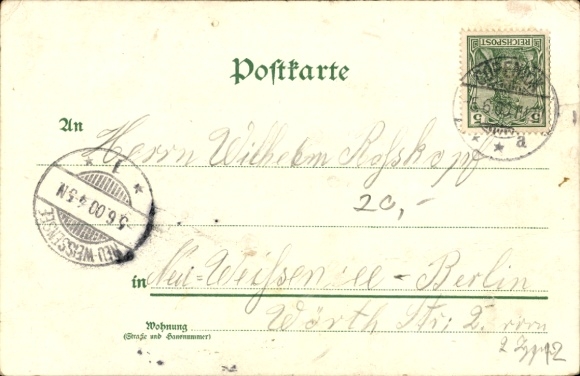 Postkarte
REICHSPOST
5 5
a
An Herrn Wilhelm Rosskopf
20,-
1
5.6.00.4-5N
NEU-WEISSENSEE
in Neu-Weißensee-Berlin
Wohnung
(Straße und Hausnummer)
Wörth Str: 2.
2